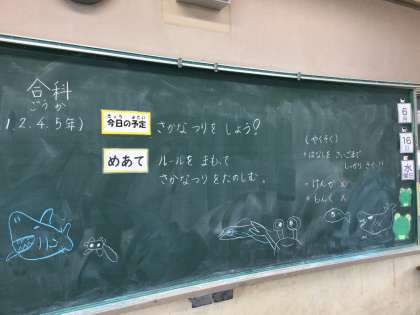 合科
ごうか
1.2.4.5年)
きょう よてい
今日の予定
さかなつりを しよう?
めあて
ルールを まもって
さかなつりをたのしむ。
(やくそく)
・はなしを さいごまで
しっかり きく!!
・けんか ×
・もんく ×
6
16
水